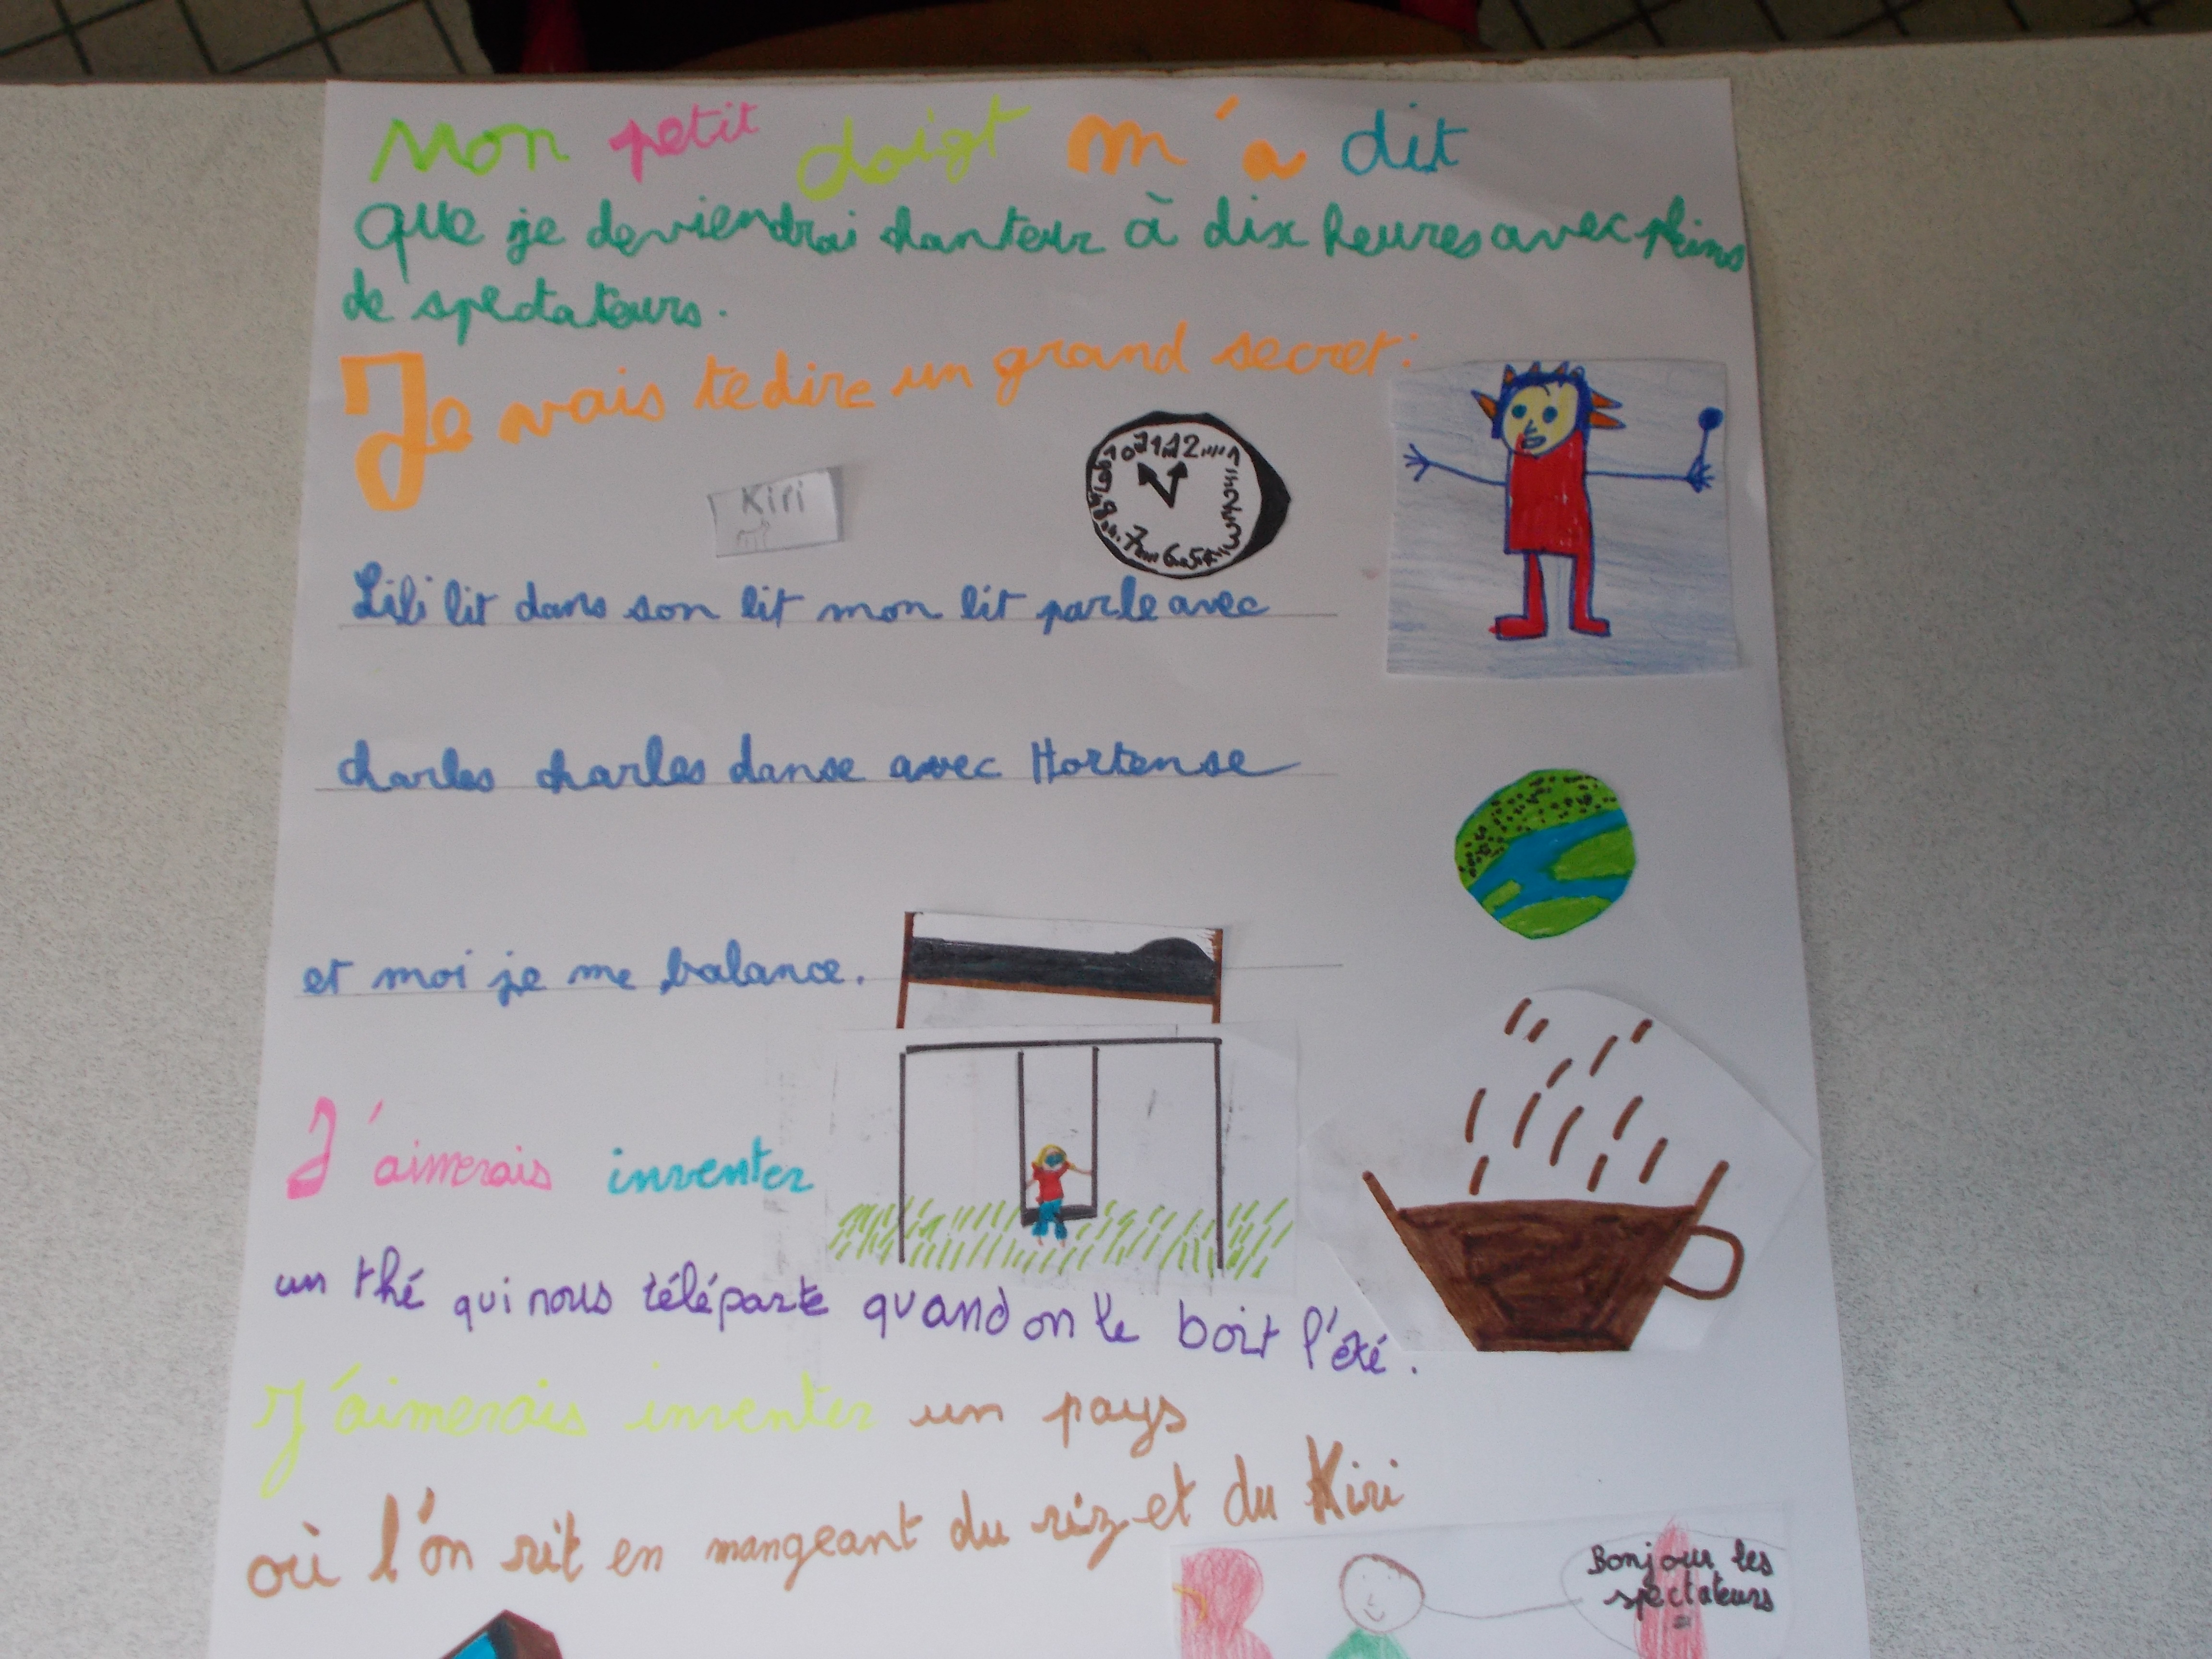 Mon petit doigt m'a dit
que je deviendrai chanteur à dix heures avec pleins
de spectateurs.
Je vais te dire un grand secret:
Kiri
10 11 12 1
2
3
8
7 6 5 4
Lili lit dans son lit mon lit parle avec
charles charles danse avec Hortense
et moi je me balance.
J'aimerais inventer
un thé qui nous téléporte quand on le boit l'été.
J'aimerais inventer un pays
où l'on rit en mangeant du riz et du Kiri
Bonjour les
spectateurs